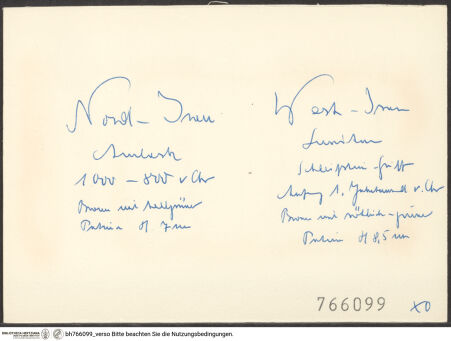 Nord-Iran
Amlash
1000 – 800 v Chr
Bronze mit hellgrüner
Patina H 7 cm
West-Iran
Luristan
Schleifstein-Griff
Anfang 1. Jahrtausend v. Chr
Bronze mit rötlich-grüner
Patina H 8,5 cm
766099
XO
bh766099_verso Bitte beachten Sie die Nutzungsbedingungen.